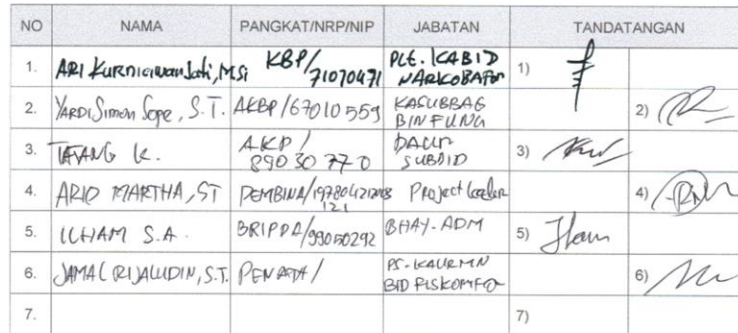 NO NAMA PANGKAT/NRP/NIP JABATAN TANDATANGAN
1. ARI Kurniawan Jati, M.Si KBP/ 71070471 PLT. KABID NARKOBAFOR 1)
2. YARDI Simon Sope, S.T. AKBP/67010559 KASUBBAG BINFUNG 2)
3. TATANG K. AKP/ 89030770 PAUR SUBBID 3)
4. ARIO MARTHA, ST PEMBINA/ 121 Project Leader 4)
5. ILHAM S.A. BRIPDA/99050292 BHAY. ADM 5) Ilham
6. JAMAL RIJALUDIN, S.T. PENATA/ PS. KAURMIN BID FISKOMFOR 6)
7. 7)